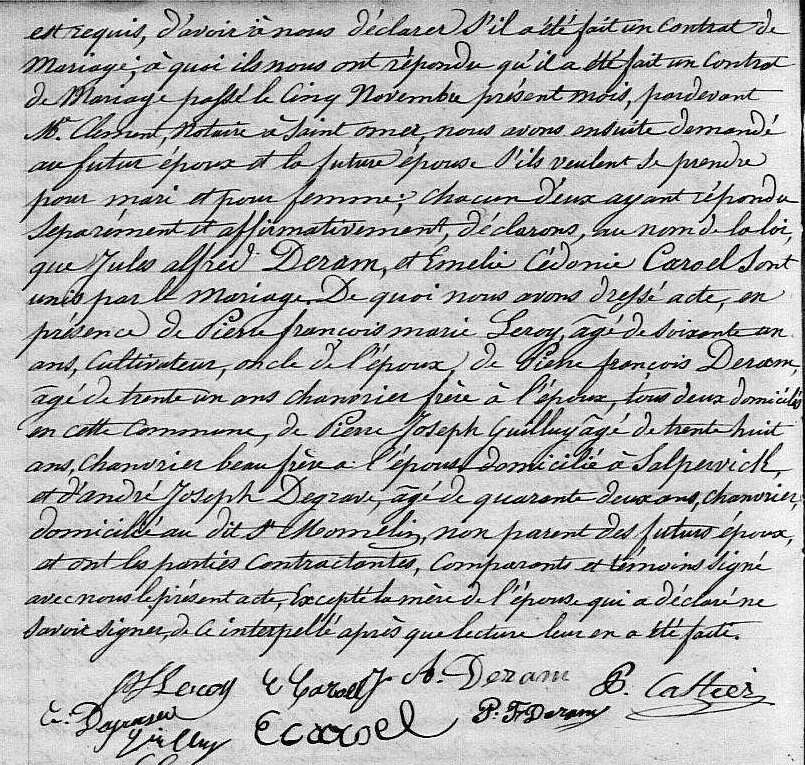 est requis, d'avoir à nous déclarer s'il a été fait un Contrat de
Mariage, à quoi ils nous ont répondu qu'il a été fait un Contrat
de Mariage passé le Cinq Novembre présent mois, pardevant
Me Clement, Notaire à Saint omer, nous avons ensuite demandé
au futur époux et la future épouse s'ils veulent se prendre
pour mari et pour femme; chacun d'eux ayant répondu
séparément et affirmativement, déclarons, au nom de la loi,
que Jules alfred Deram, et Emelie Cédonie Caroel sont
unis par le mariage. De quoi nous avons dressé acte, en
présence de Pierre françois marie Leroy, âgé de soixante un
ans, Cultivateur, oncle de l'époux, de Pierre françois Deram,
âgé de trente un ans chanvrier frère à l'époux, tous deux domiciliés
en cette Commune, de Pierre Joseph Guilluy âgé de trente huit
ans, Chanvrier beau frère à l'épouse domicilié à Salperwick,
et d'andré Joseph Degrave, âgé de quarante deux ans, chanvrier,
domicilié au dit St Momelin, non parent des futurs époux,
et ont les parties Contractantes, Comparants et témoins signé
avec nous le présent acte, Excepté la mère de l'épouse qui a déclaré ne
savoir signer, de ce interpellé après que lecture leur en a été faite.
Leroy E Caroel J A. Deram P. Cattiez
Degrave Guilluy E caroel P. F. Deram